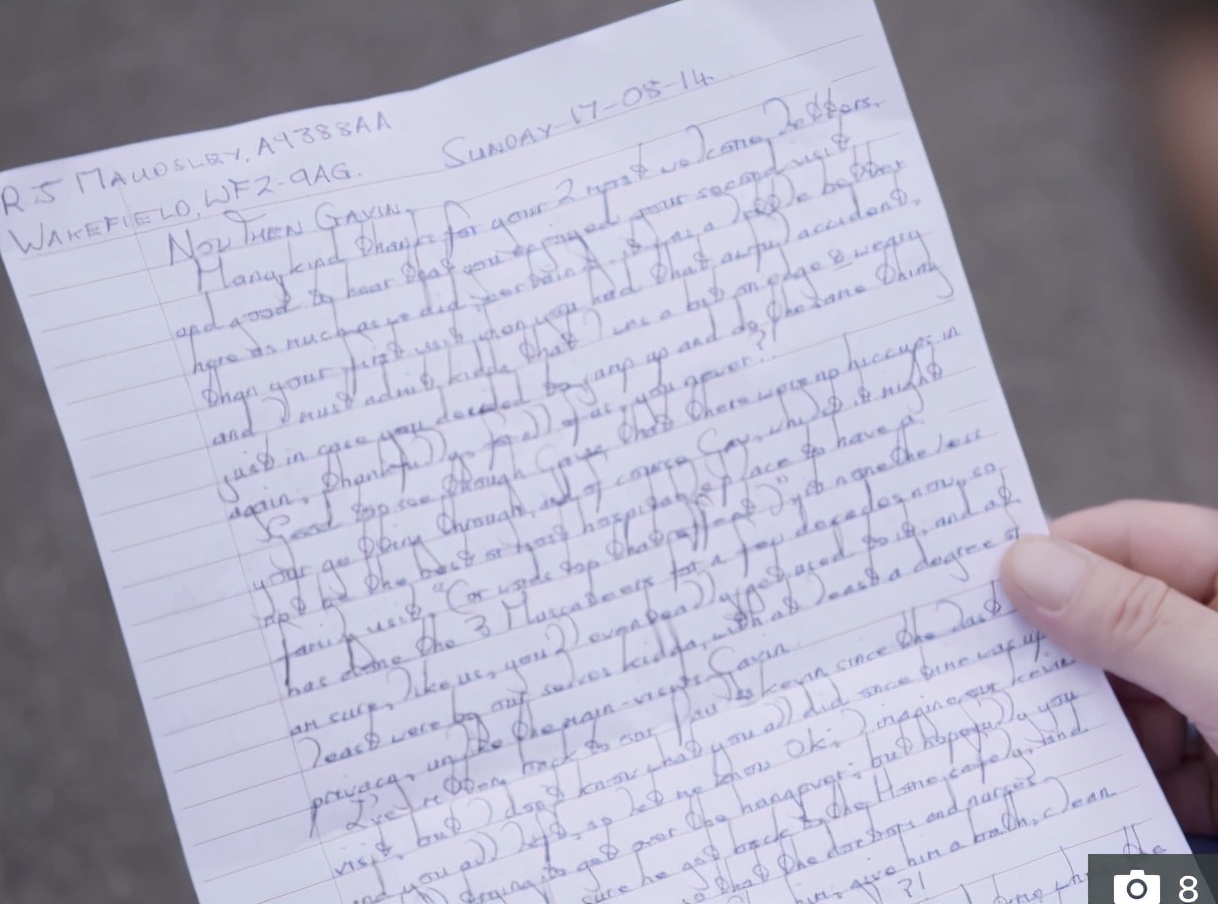 R J MAUDSLEY. A9388AA
SUNDAY-17-08-14
WAKEFIELD, WF2-9AG.
NOW THEN GAVIN.
Many kind thanks for your 2 most welcome letters.
and good to hear that you enjoyed your second visit
here as much as we did, certain it was a little better
than your first visit when you had that awful accident.
and I must admit, kidda that I was a bit on edge & weary
just in case you decided to jump up and do the same thing
again. thankfully, for all of us, you never...?
Good too though that there were no hiccups in
your getting through, and of course Gav, whilst it might
not be the best or most hospitable place to have a
family visit, yet none the less
has done the 3 Muscateers for a few decades now, so
am sure, like us, you'll eventually get used to it, and at
least were by our selves kidda, with at least a degree of
privacy, unlike the main-visits Gavin.
I've written back to our Paul & Kevin since the last
visit, but I don't know what you all did once time was up
and you all left, so let me know OK. I imagine our Kevin
trying to get over the hangover, but hopefully you
sure he got back to the Home safely, and
that the doctors and nurses
him, give him a bath, clean
?!
the
8